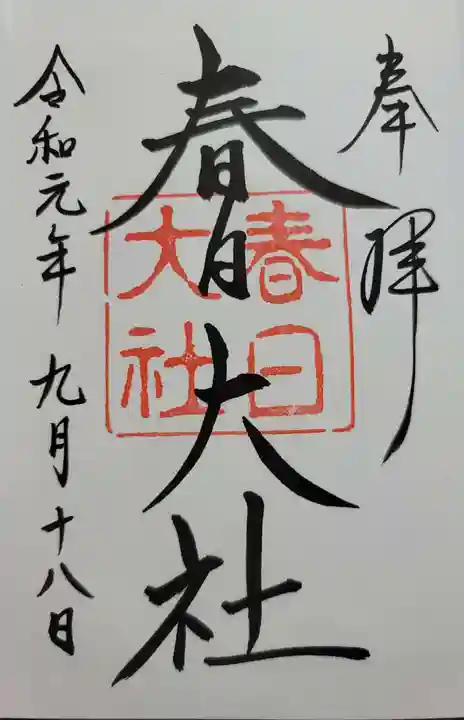 奉拝
春日大社
春日
大社
令和元年九月十八日